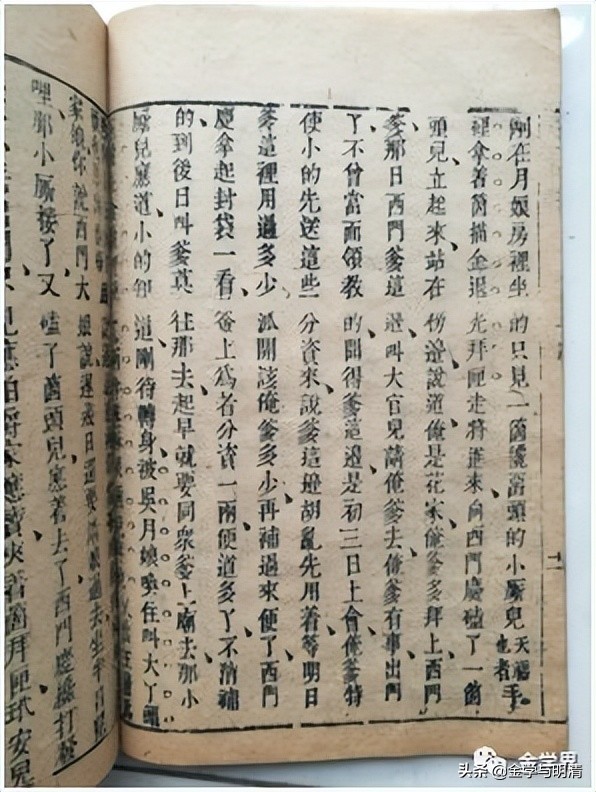 剛在月娘房裡坐的只見一箇留頭的小厮兒天福也者手
裡拿着箇描金退光拜匣走將進來向西門慶磕了一箇
頭兒立起來站在傍邊說道俺是花家俺爹多拜上西門
爹那日西門爹這邊叫大官兒請俺爹去俺爹有事出門
了不曾當面領教的聞得爹這邊是初三日上會俺爹特
使小的先送這些分資來說爹這邊胡亂先用着等明日
爹這裡用過多少派開該俺爹多少再補過來便了西門
慶拿起封袋一看簽上寫着分資一兩便道多了不消補
的到後日叫爹莫往那去起早就要同衆爹上廟去那小
厮兒應道小的知道剛待轉身被吳月娘喚住叫大丫頭
家娘你說西門大娘說遲幾日還要娘過去坐半日兒
哩那小厮接了又磕了箇頭兒應着去了西門慶纔打發
見應伯爵家應寶夾着箇拜匣玳安兒
金学界
头条 @金学与明清